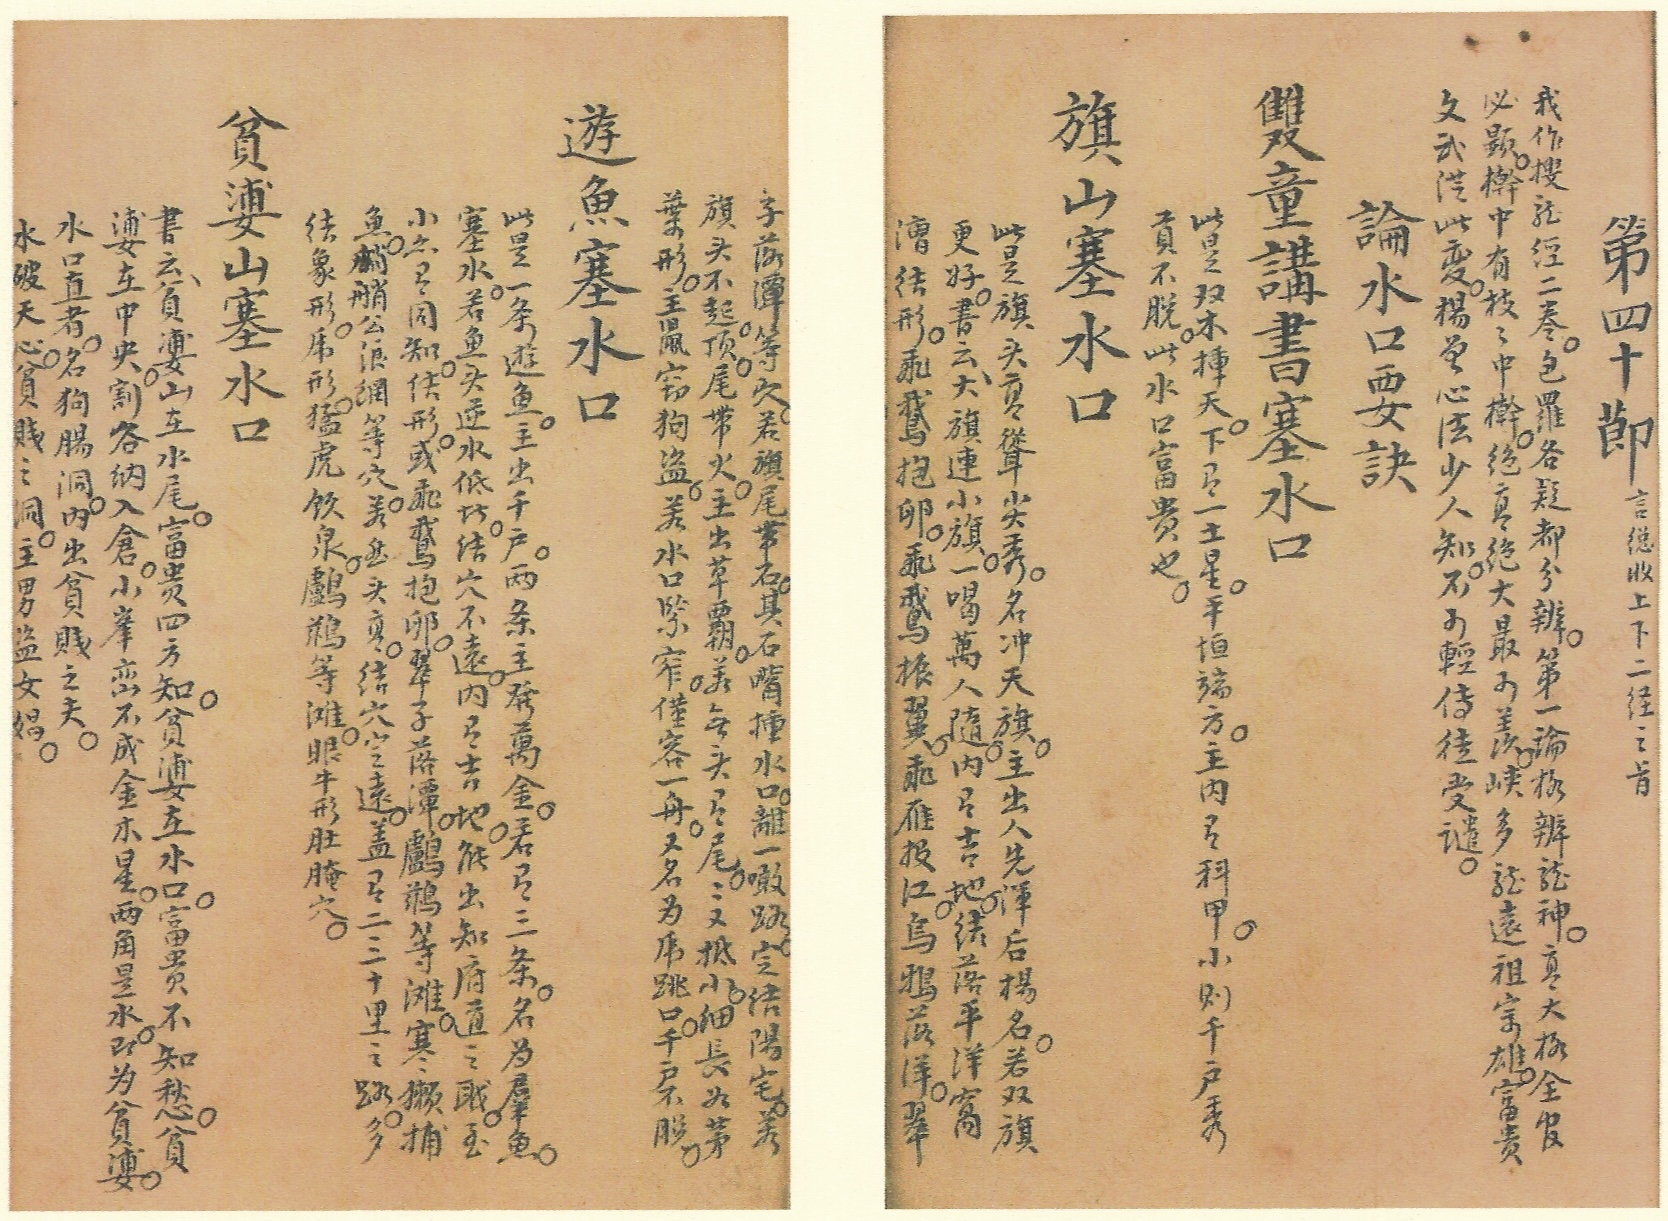 第四十節 言總收上下二径之首
我作搜龙經二卷。包羅各疑都分辨。第一論格辨龍神。真大格全皆
必顯。幹中有枝枝中幹。绝真绝大最可羡。峡多龍遠祖宗雄。富贵
文武從此变。楊曾心法少人知。不可輕传徒受谴。
論水口要訣
雙童講書塞水口
此是双木挿天下。有一土星。平恒端方。主内有科甲。小则千户秀
貢不脱。此水口富貴也。
旗山塞水口
此是旗头真聳尖秀。名冲天旗。主出人先渾后楊名。若双旗
更好。書云、大旗連小旗。一喝萬人隨。内有吉地。结落平洋窩
漕结形。飛鵞抱卵。飛鵞振翼。飛雁投江。烏鴉落洋。翠
子落潭等穴。若旗尾带石。其石嘴挿水口。離一墩路。定结陽宅。若
旗头不起顶。尾带火。主出草覇。若无头有尾。尾又抵小。细長如茅
葉形。主鼠窃狗盗。若水口緊窄。僅容一舟。又名为虎跳口。千户不脱。
遊魚塞水口
此是一条遊魚。主出千户。两条主發萬金。若有三条。名为群魚。
塞水。若魚头逆水低垰。结穴不遠。内有吉地。能出知府道之职。至
小亦有同知。结形。或飛鵞抱卵。翠子落潭。鸕鶿等滩。寒獭捕
魚。艄公浪網等穴。若魚头真。结穴定遠。盖有二三十里之路。多
结象形。虎形。猛虎飲泉。鸕鶿等滩。眠牛形肚腌穴。
貧婆山塞水口
書云、貧婆山在水尾。富贵四方知。貧婆在水口。富貴不知愁。貧
婆在中央。割容纳入倉。小峯峦不成金木星。两角是水。即为貧婆。
水口直者。名狗腸洞。内出貧賤之夫。
水破天心。貧賤之洞。主男盗女娼。